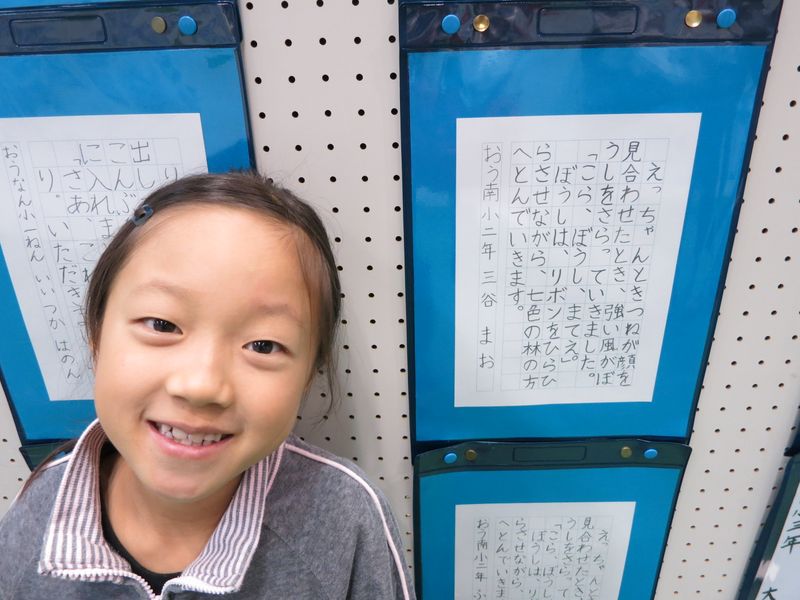 えっちゃんときつねが顔を
見合わせたとき、強い風がぼ
うしをさらっていきました。
「こら、ぼうし、まてえ。」
ぼうしは、リボンをひらひ
らさせながら、七色の林の方
へとんでいきます。
おう南小二年 三谷 まお
り
出し
こんぶ
に入れ、これ
「さあ、いただきま
り。
おうなん小一ねん いいつか はのん
えっちゃんと
見合わせたとき
うしをさらって
「こら、ぼうし
ぼうしは、リ
らさせながら、
へとんでいきま
おう南小二年 ふ
大